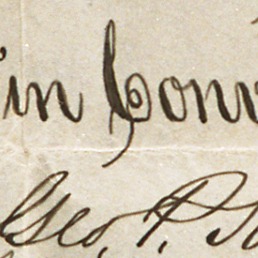 in Conv
Geo. P.